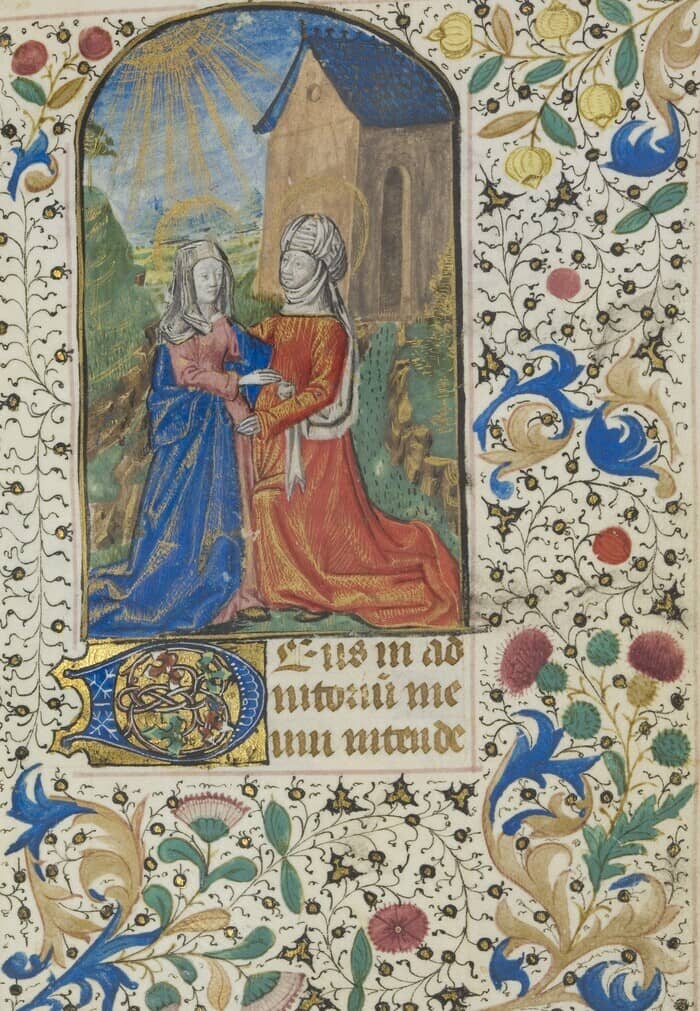 Deus in ad
iutoriū me
um intende